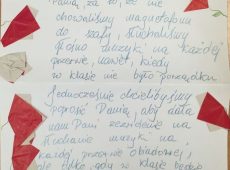 Panią za to, że nie
chowaliśmy magnetofonu
do szafy, słuchaliśmy
głośno muzyki na każdej
przerwie, nawet, kiedy
w klasie nie było porządku.
Jednocześnie chcielibyśmy
poprosić Panią, aby dała
nam Pani zezwolenie na
słuchanie muzyki na
każdej przerwie obiadowej,
ale tylko gdy w klasie będzie